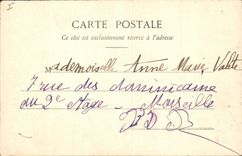 CARTE POSTALE
Ce côté est exclusivement réservé à l'adresse
Mademoiselle Anne Marie
7 rue des dominicaine
au 2e étage - Marseille